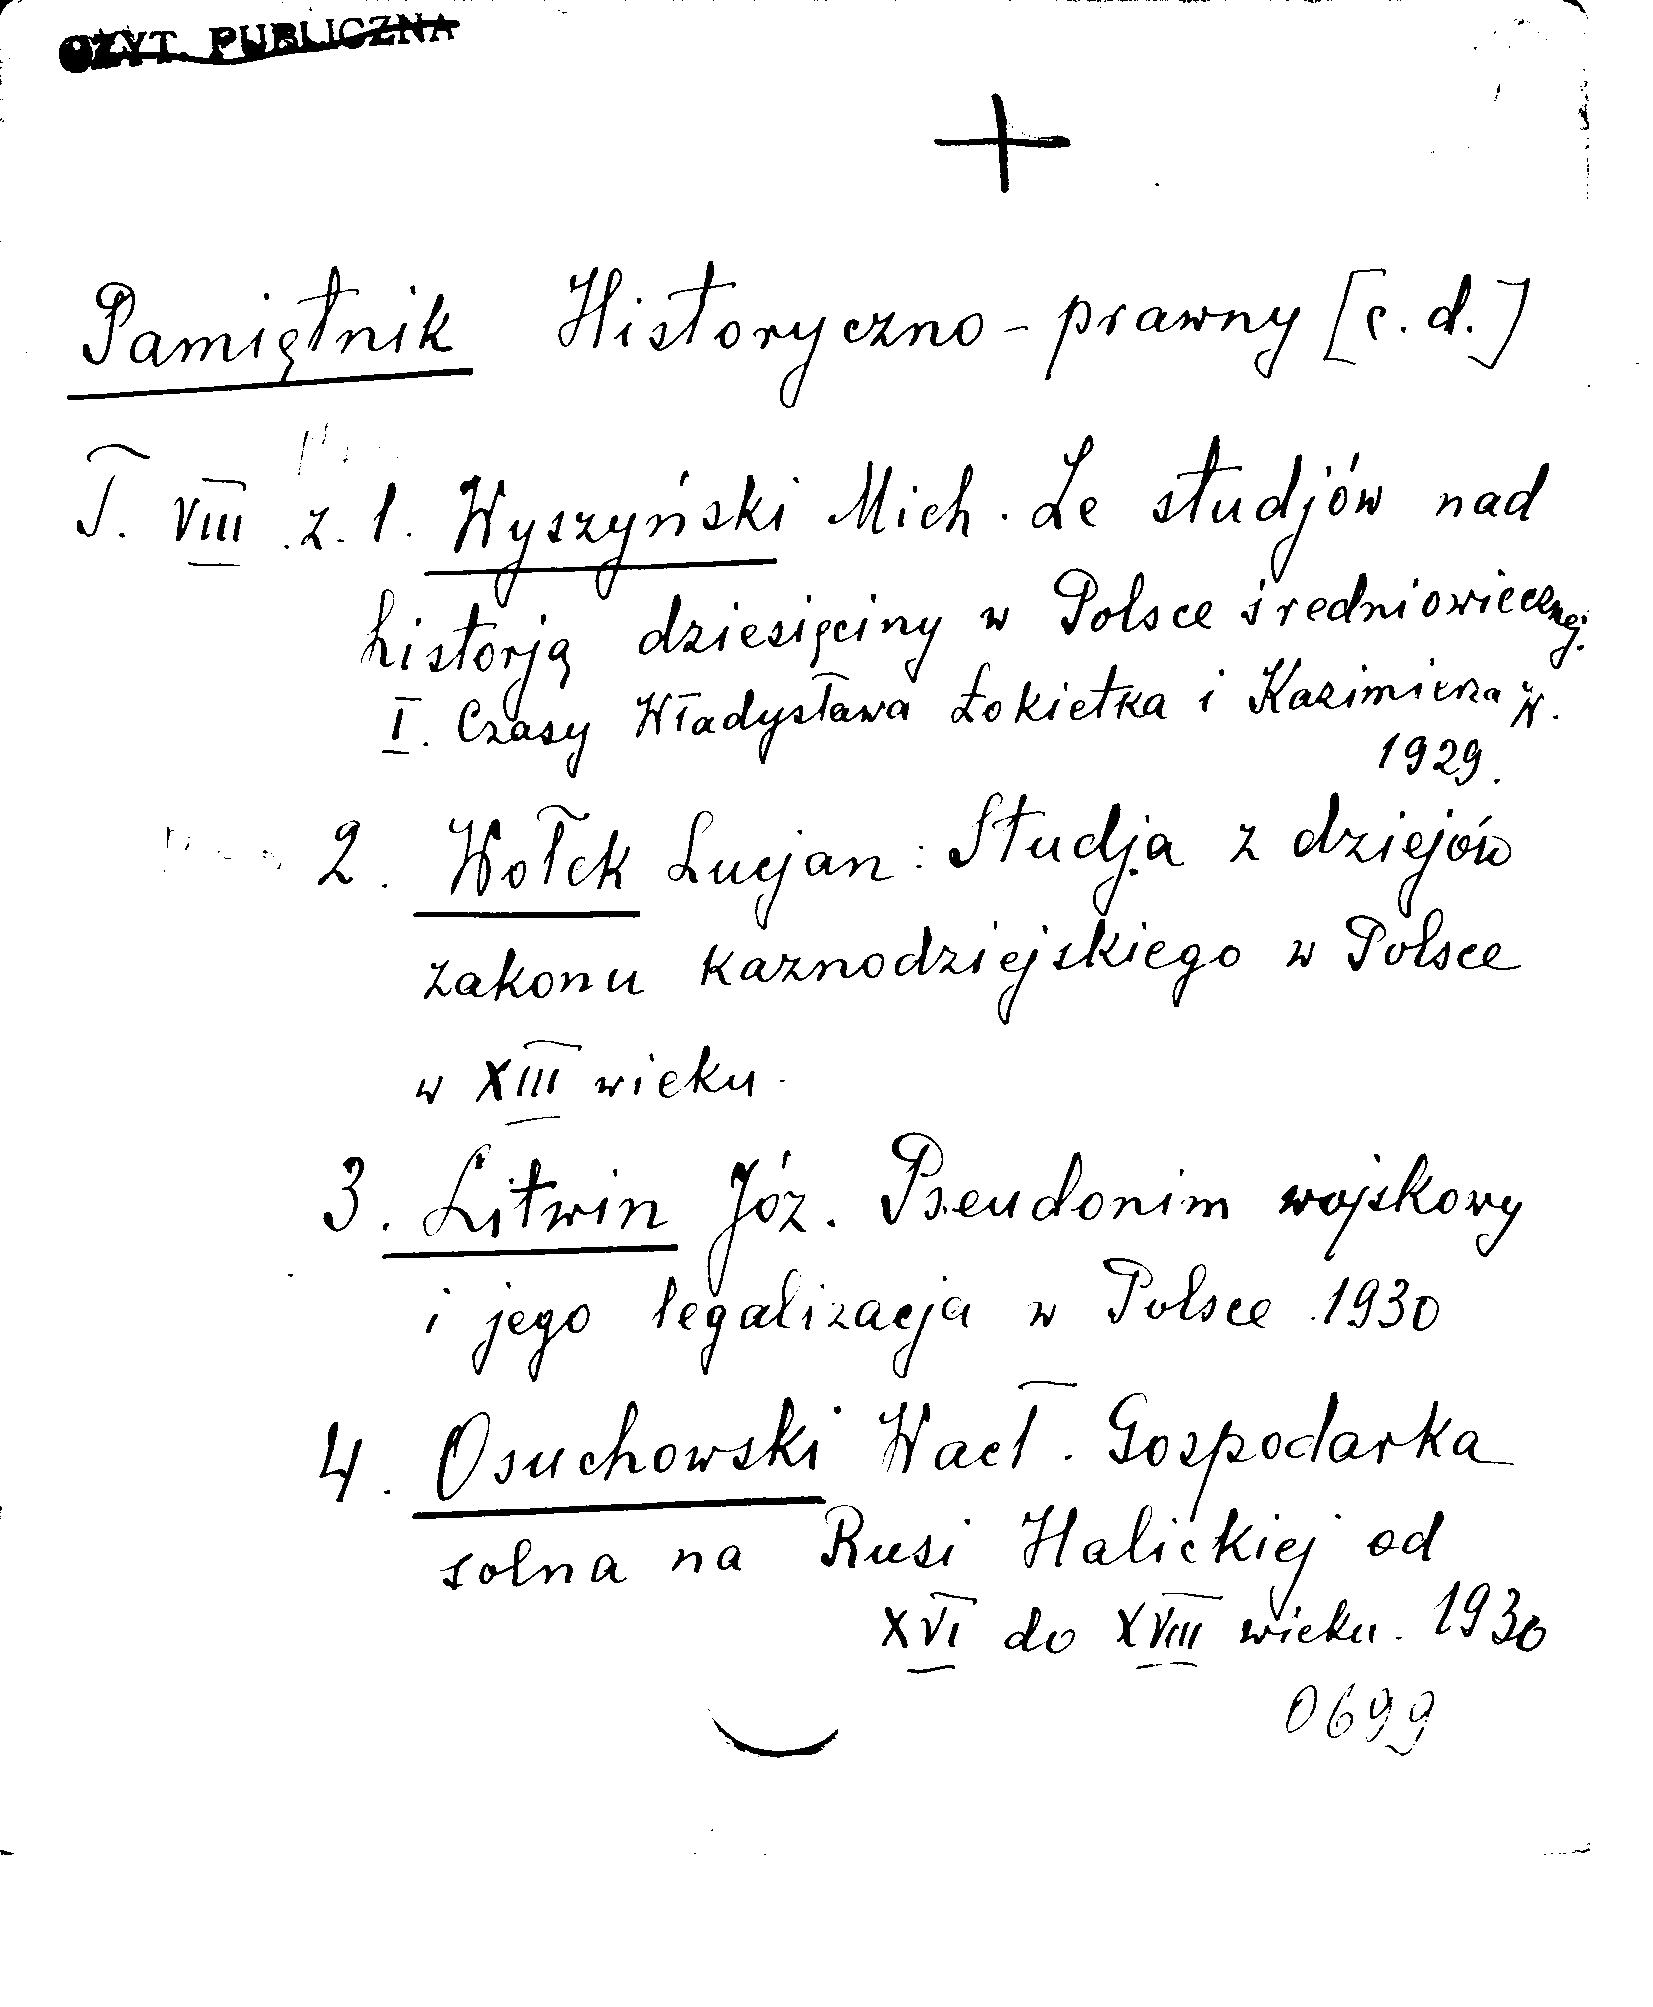 CZYT. PUBLICZNA
Pamiętnik Historyczno-prawny [c.d.]
T. VIII z. 1. Wyszyński Mich. Ze studjów nad
historją dziesięciny w Polsce średniowiecznej.
I. Czasy Władysława Łokietka i Kazimierza W.
1929.
2. Wołek Lucjan: Studja z dziejów
zakonu kaznodziejskiego w Polsce
w XIII wieku.
3. Litwin Józ. Pseudonim wojskowy
i jego legalizacja w Polsce. 1930
4. Osuchowski Wacł. Gospodarka
solna na Rusi Halickiej od
XVI do XVIII wieku. 1930
0699